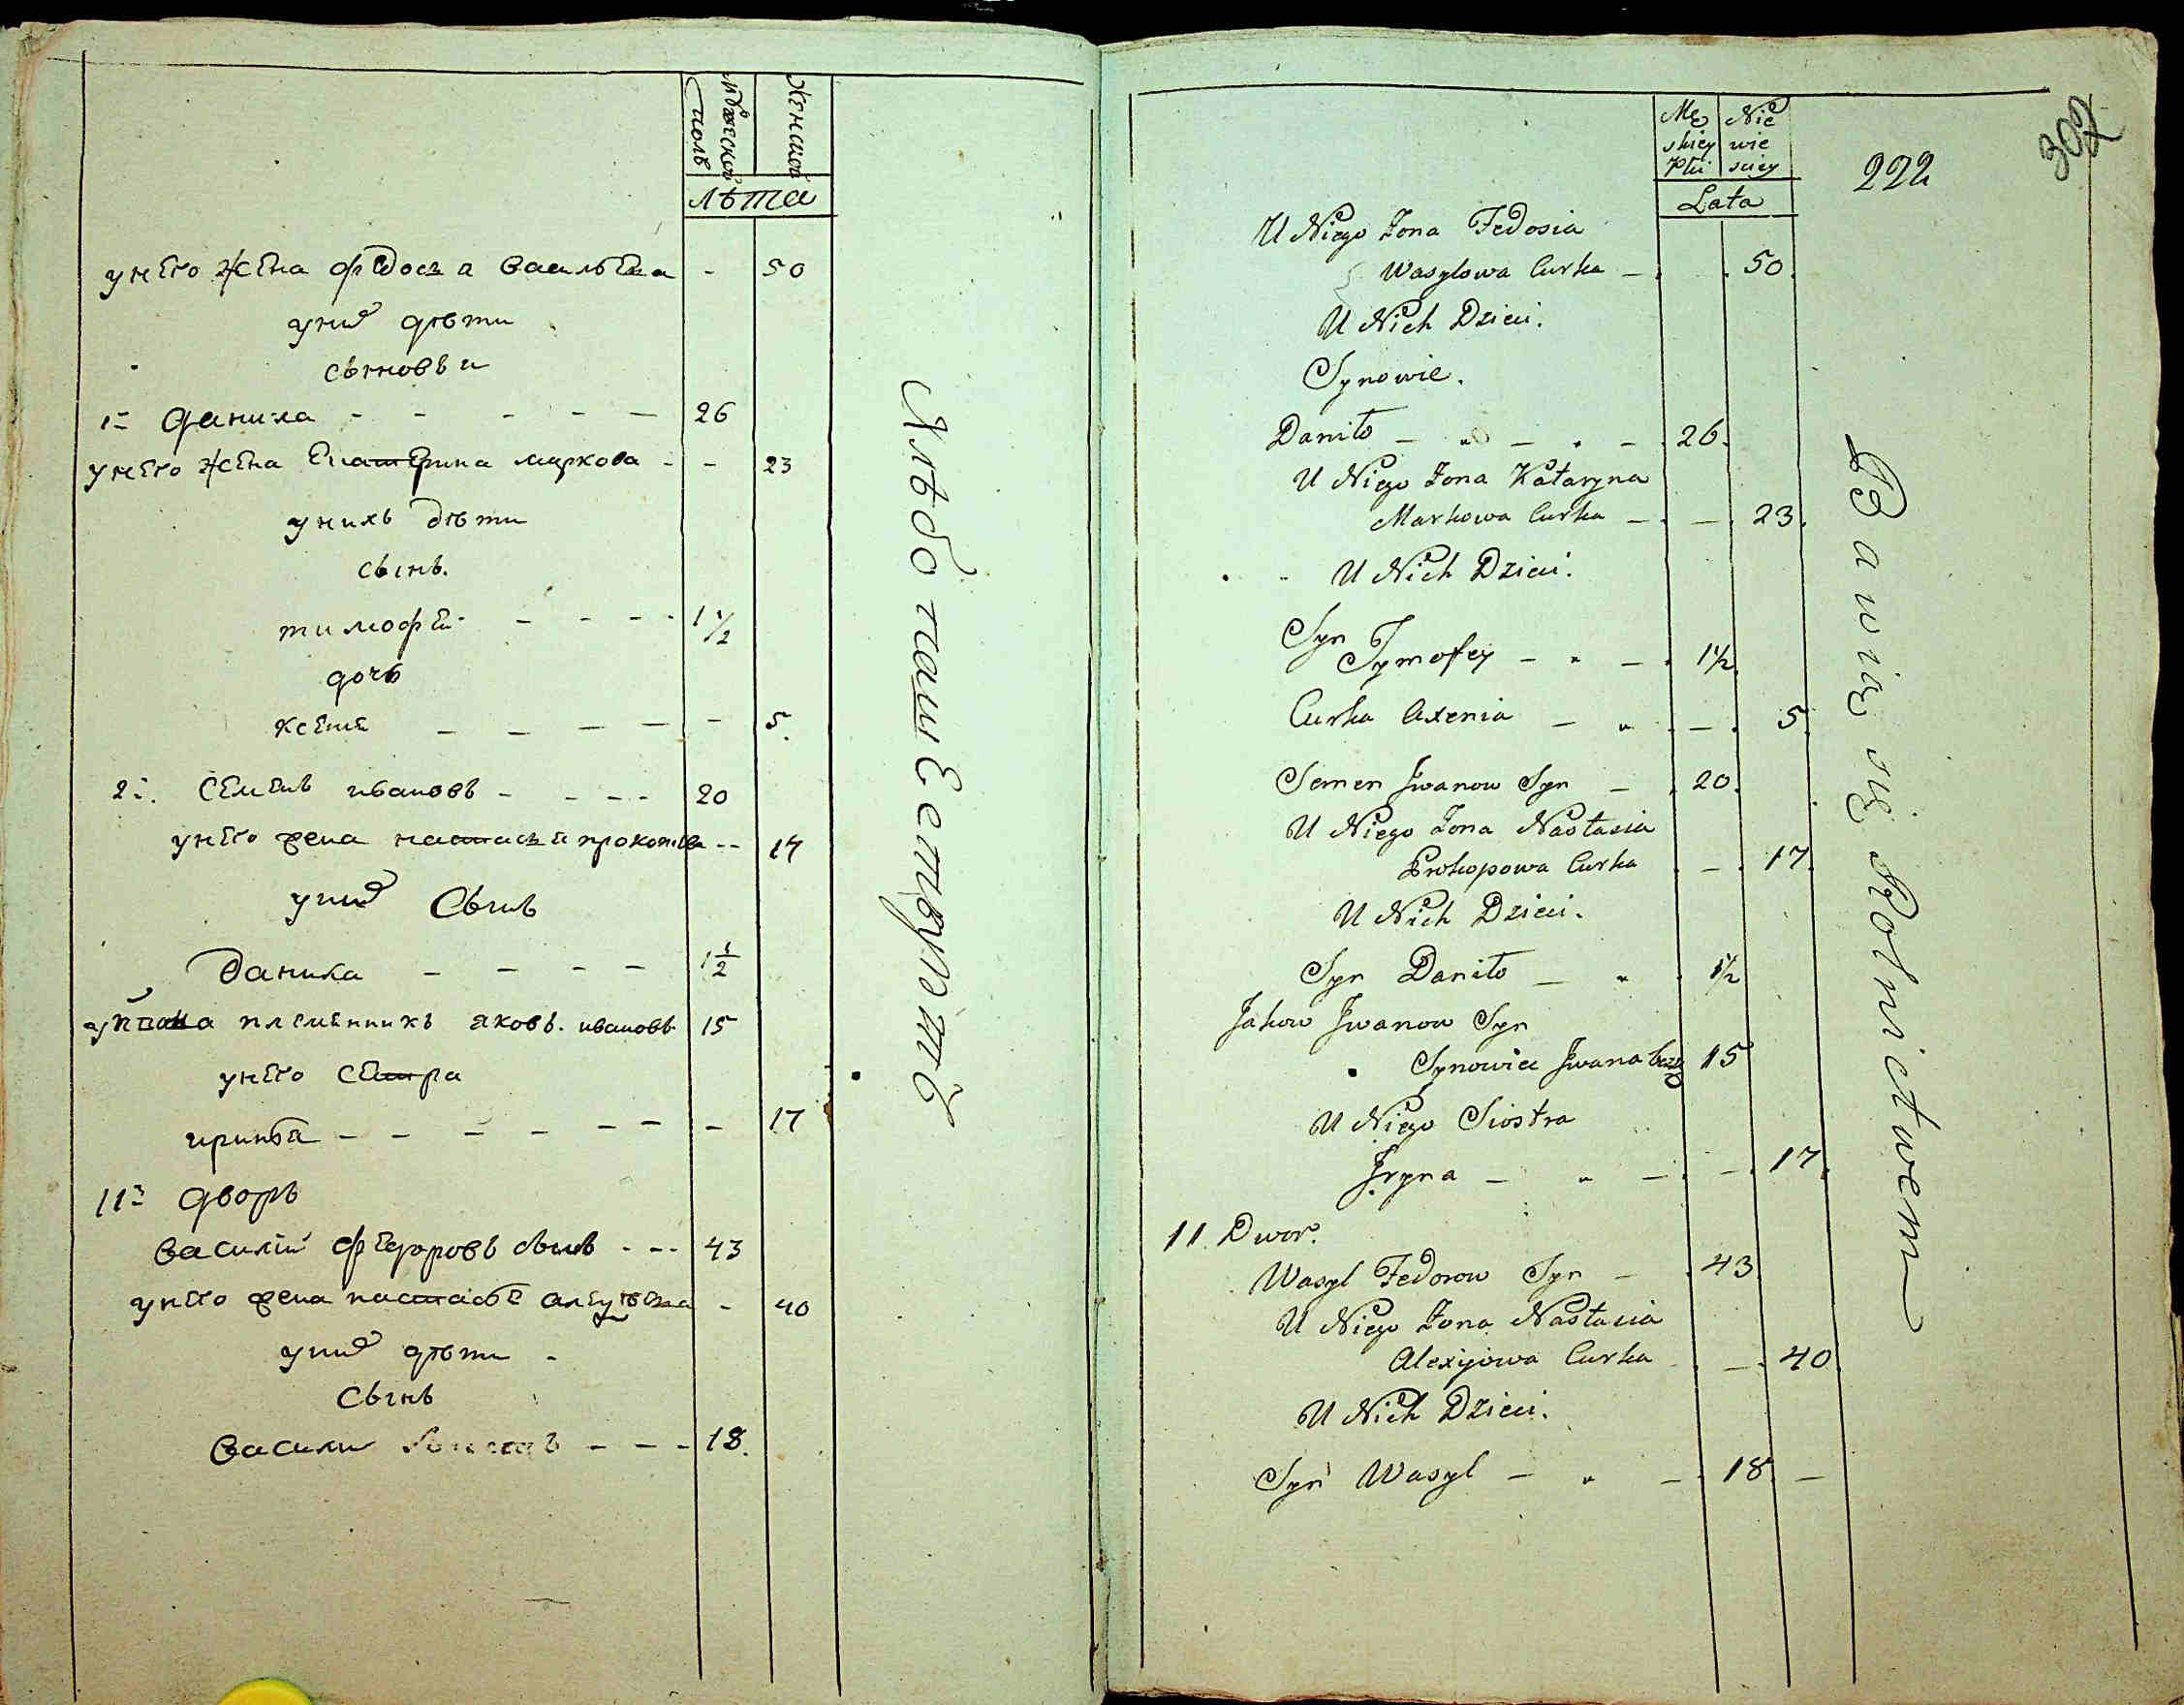 мужской полъ
женской
лѣта
у него жена федосья Васильева - 50
у них дѣти
сыновьи
1й данила - - - - - 26
у него жена Екатерина маркова - - 23
у нихъ дѣти
сынъ.
тимофей - - - - 1 1/2
дочь
ксения - - - - - 5.
2й. Семенъ ивановъ - - - - 20
у него жена настасья прокопьева - - 17
у них Сынъ
данила - - - - 1 1/2
у ивана племянникъ яковъ. ивановъ 15
у него Сестра
ирина - - - - - - - 17
11й дворъ
Василий федоровъ сынъ - - - 43
у него жена настасья - 40
у них дѣти -
Сынъ
Васили - - - 18.
Хлѣбопашествуетъ
Mę skiey Płci
Nie wie sciey
Lata
222
302
U Niego Zona Fedosia
Wasylowa Curka - 50.
U Nich Dzieci.
Synowie.
Daniło - " - " - 26.
U Niego Zona Kataryna
Markowa Curka - - 23.
U Nich Dzieci.
Syn
Tymofey - " - 1 1/2
Curka Axenia - " - 5.
Semen Jwanow Syn - 20.
U Niego Zona Nastasia
Prokopowa Curka - 17.
U Nich Dzieci.
Syn Daniło - " 1 1/2
Jakow Jwanow Syn
Synowiec Jwana 15
U Niego Siostra
Jryna - " - - 17.
11. Dwor.
Wasyl Fedorow Syn - 43
U Niego Zona Nastasia
Alexijowa Curka - 40.
U Nich Dzieci.
Syn Wasyl - " - 18 -
Bawią się Rolnictwem